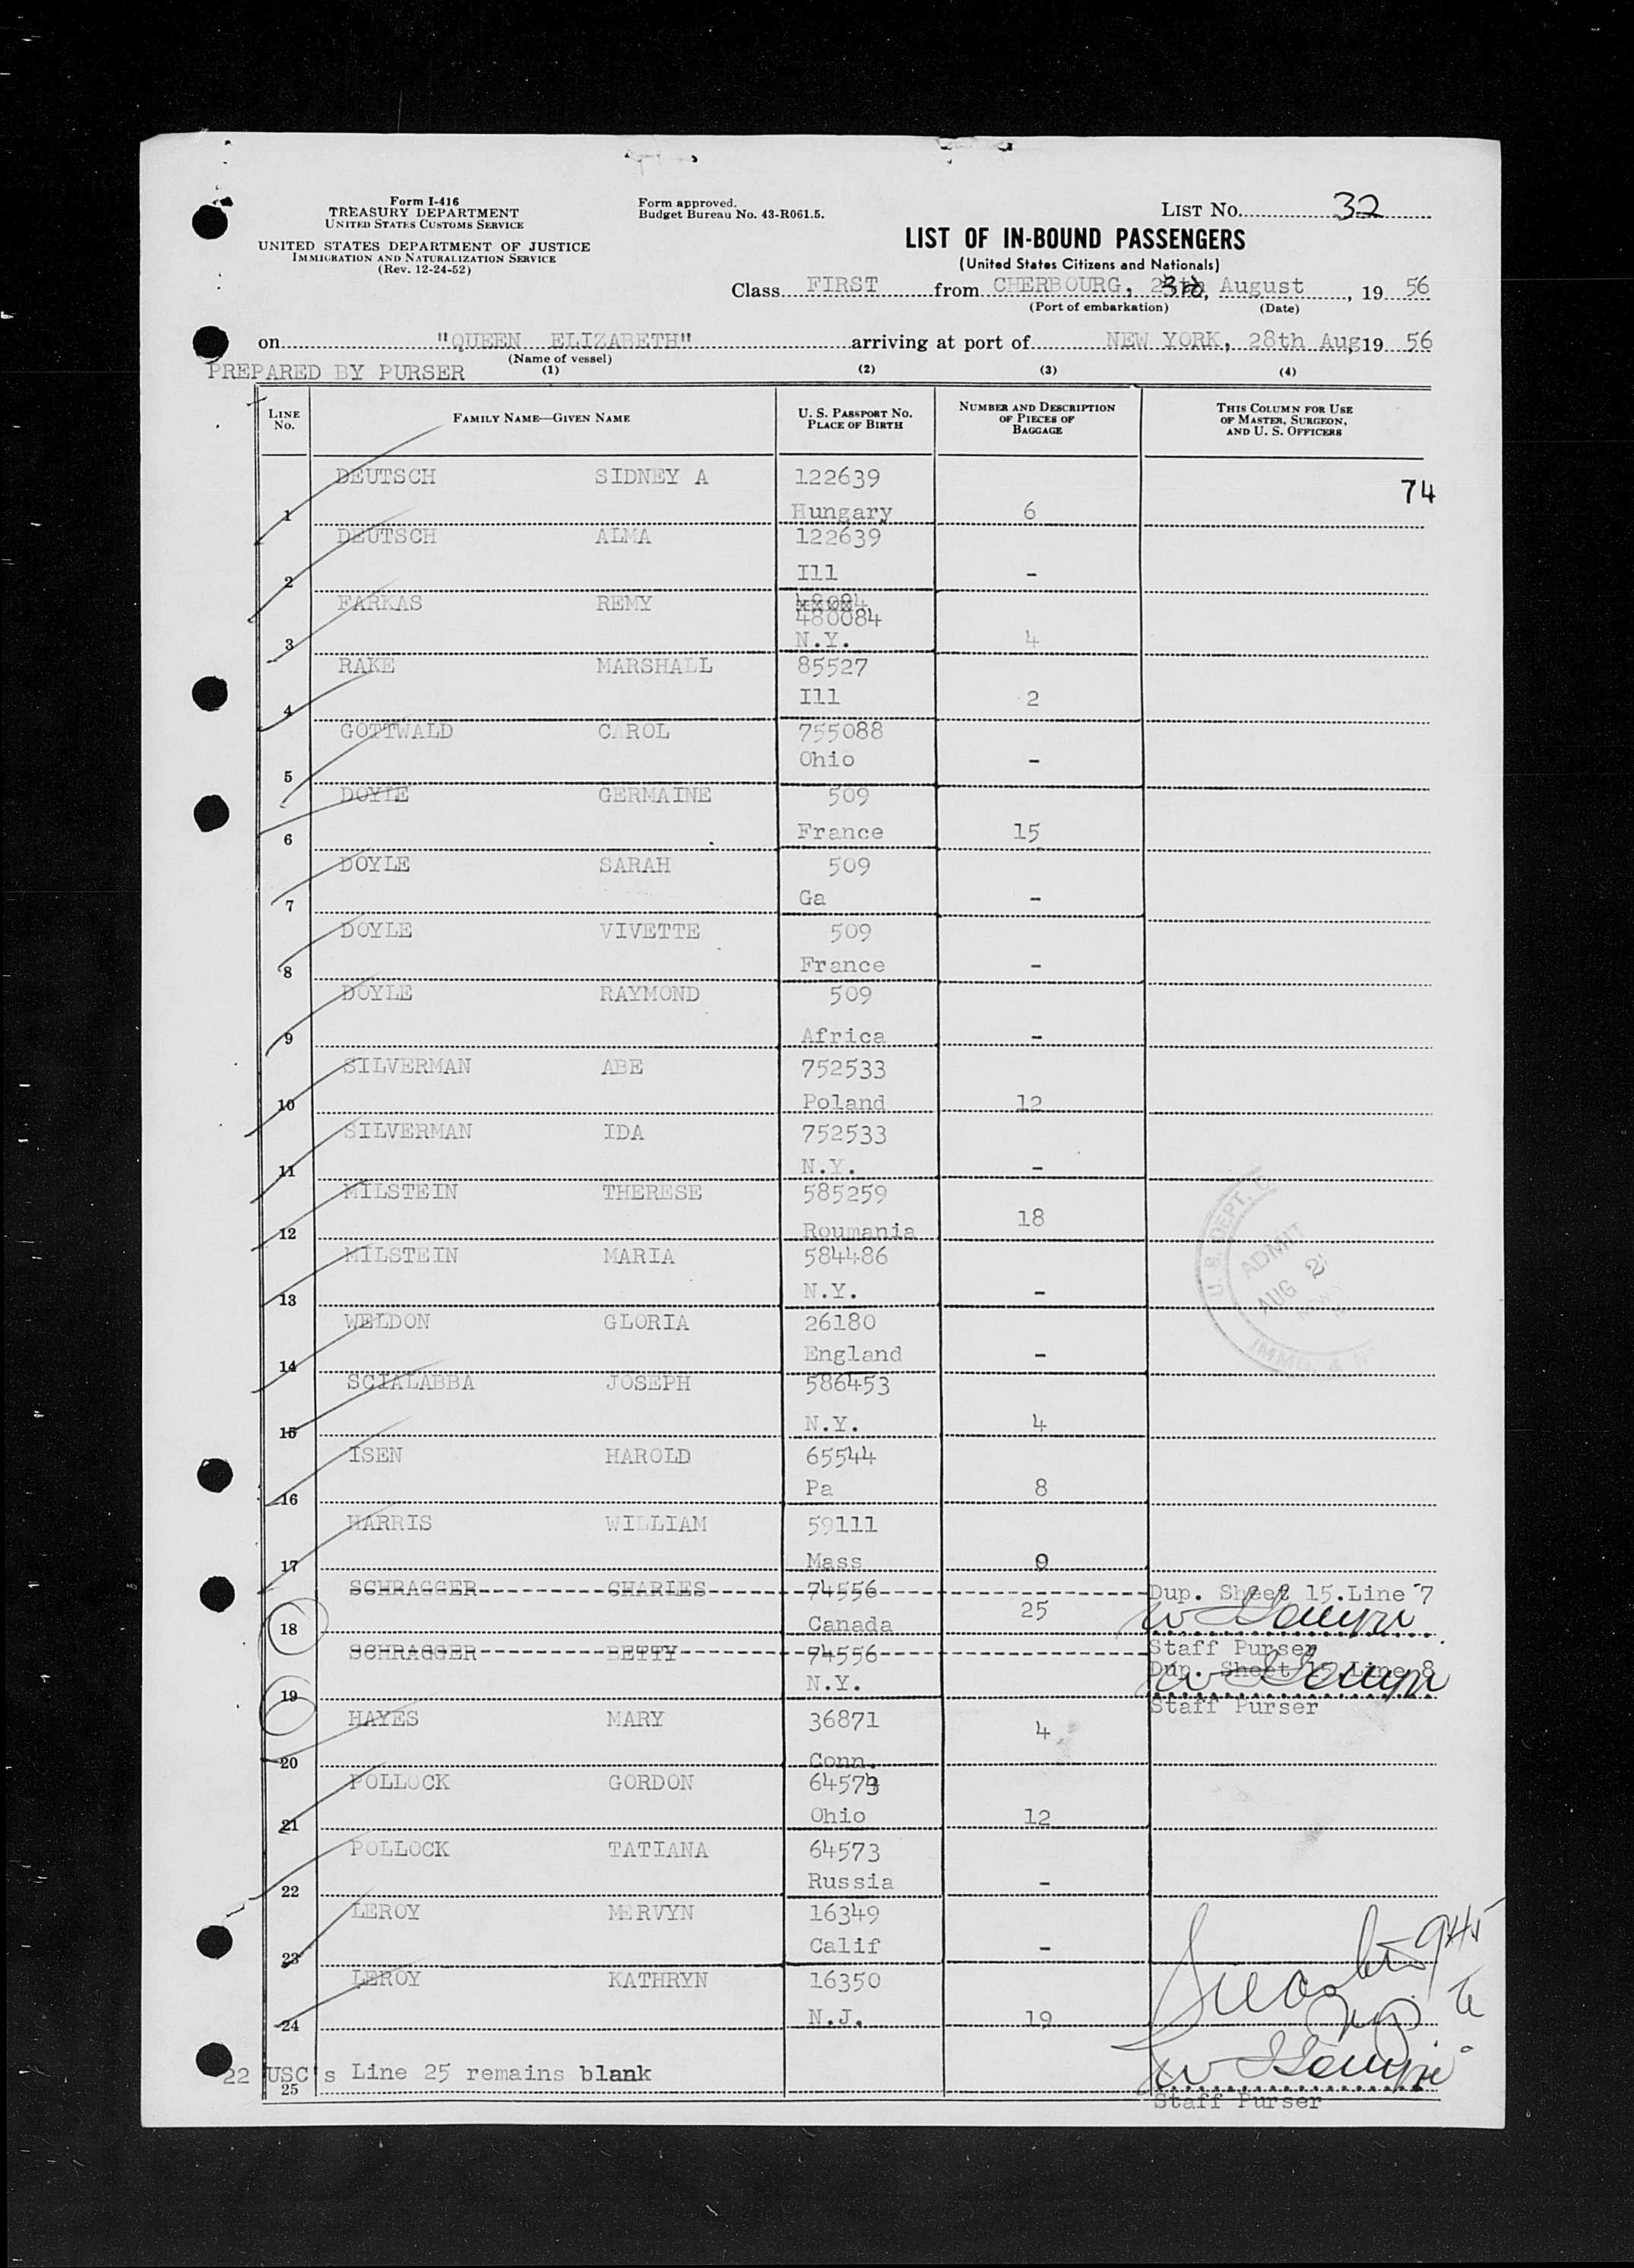 Form I-416
TREASURY DEPARTMENT
UNITED STATES CUSTOMS SERVICE
UNITED STATES DEPARTMENT OF JUSTICE
IMMIGRATION AND NATURALIZATION SERVICE
(Rev. 12-24-52)
Form approved.
Budget Bureau No. 43-R061.5.
LIST No. 32
LIST OF IN-BOUND PASSENGERS
(United States Citizens and Nationals)
Class FIRST from CHERBOURG, August, 19 56
(Port of embarkation) (Date)
on "QUEEN ELIZABETH" arriving at port of NEW YORK, 28th Aug 19 56
(Name of vessel)
PREPARED BY PURSER (1) (2) (3) (4)
LINE No. FAMILY NAME—GIVEN NAME U. S. PASSPORT No. PLACE OF BIRTH NUMBER AND DESCRIPTION OF PIECES OF BAGGAGE THIS COLUMN FOR USE OF MASTER, SURGEON, AND U. S. OFFICERS
DEUTSCH SIDNEY A 122639
74
1 Hungary 6
DEUTSCH ALMA 122639
2 Ill -
FARKAS REMY
480084
3 N.Y. 4
RAKE MARSHALL 85527
4 Ill 2
GOTTWALD CAROL 755088
5 Ohio -
DOYLE GERMAINE 509
6 France 15
DOYLE SARAH 509
7 Ga -
DOYLE VIVETTE 509
8 France -
DOYLE RAYMOND 509
9 Africa -
SILVERMAN ABE 752533
10 Poland 12
SILVERMAN IDA 752533
11 N.Y. -
MILSTEIN THERESE 585259
12 Roumania 18
MILSTEIN MARIA 584486
13 N.Y. -
WELDON GLORIA 26180
14 England -
SCIALABBA JOSEPH 586453
15 N.Y. 4
ISEN HAROLD 65544
16 Pa 8
HARRIS WILLIAM 59111
17 Mass 0
SCHRAGGER CHARLES 74556 Dup. Sheet 15.Line 7
18 Canada 25
Staff Purser
SCHRAGGER BETTY 74556 Dup. Sheet 15 Line 8
19 N.Y.
Staff Purser
HAYES MARY 36871
20 Conn. 4
POLLOCK GORDON 64573
21 Ohio 12
POLLOCK TATIANA 64573
22 Russia -
LEROY MERVYN 16349
23 Calif -
LEROY KATHRYN 16350
24 N.J. 19
22 USC's Line 25 remains blank
25
Staff Purser
U. S. DEPT.
ADMIT
AUG 2
IMMG. &